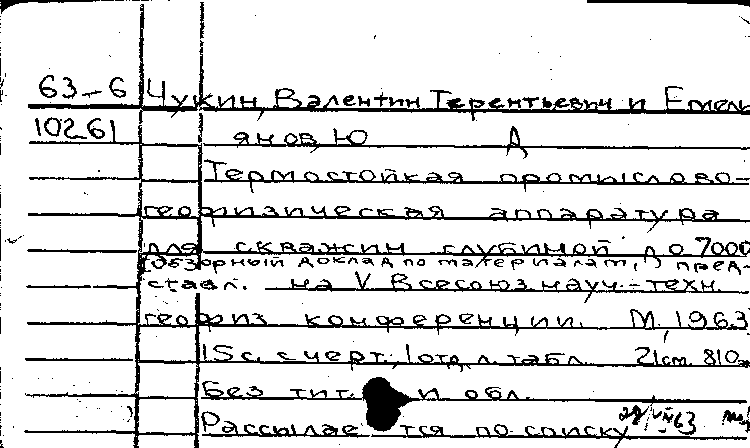 63-6 Чукин, Валентин Терентьевич и Емель
10261 янов, Ю А
Термостойкая промыслово-
геофизическая аппаратура
для скважин глубиной до 7000
(Обзорный доклад по материалам, пред-
ставл. на V Всесоюз. науч.-техн.
геофиз конференции. М, 1963
15с. с черт., 1 отд. л. табл. 21см. 810э
Без тит. л. и обл.
Рассылается по списку 63